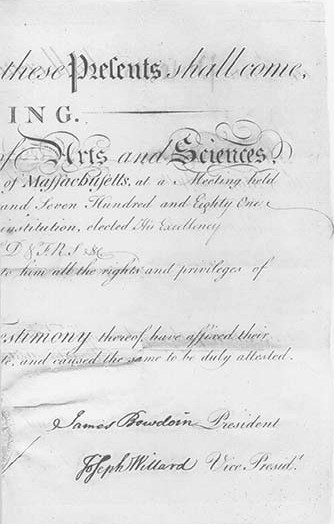 these Presents shall come,
ING.
of Arts and Sciences,
of Massachusetts, at a Meeting held
and Seven Hundred and Eighty One
institution, elected His Excellency
D & F.R.S &c
to him all the rights and privileges of
estimony thereof, have affixed their
and caused the same to be duly attested.
James Bowdoin President
Joseph Willard Vice Presidt.